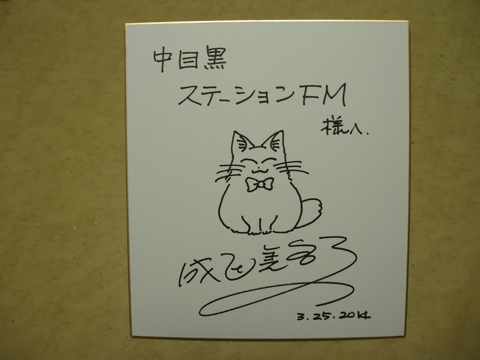 中目黒
ステーションFM
様へ.
3.25.2014